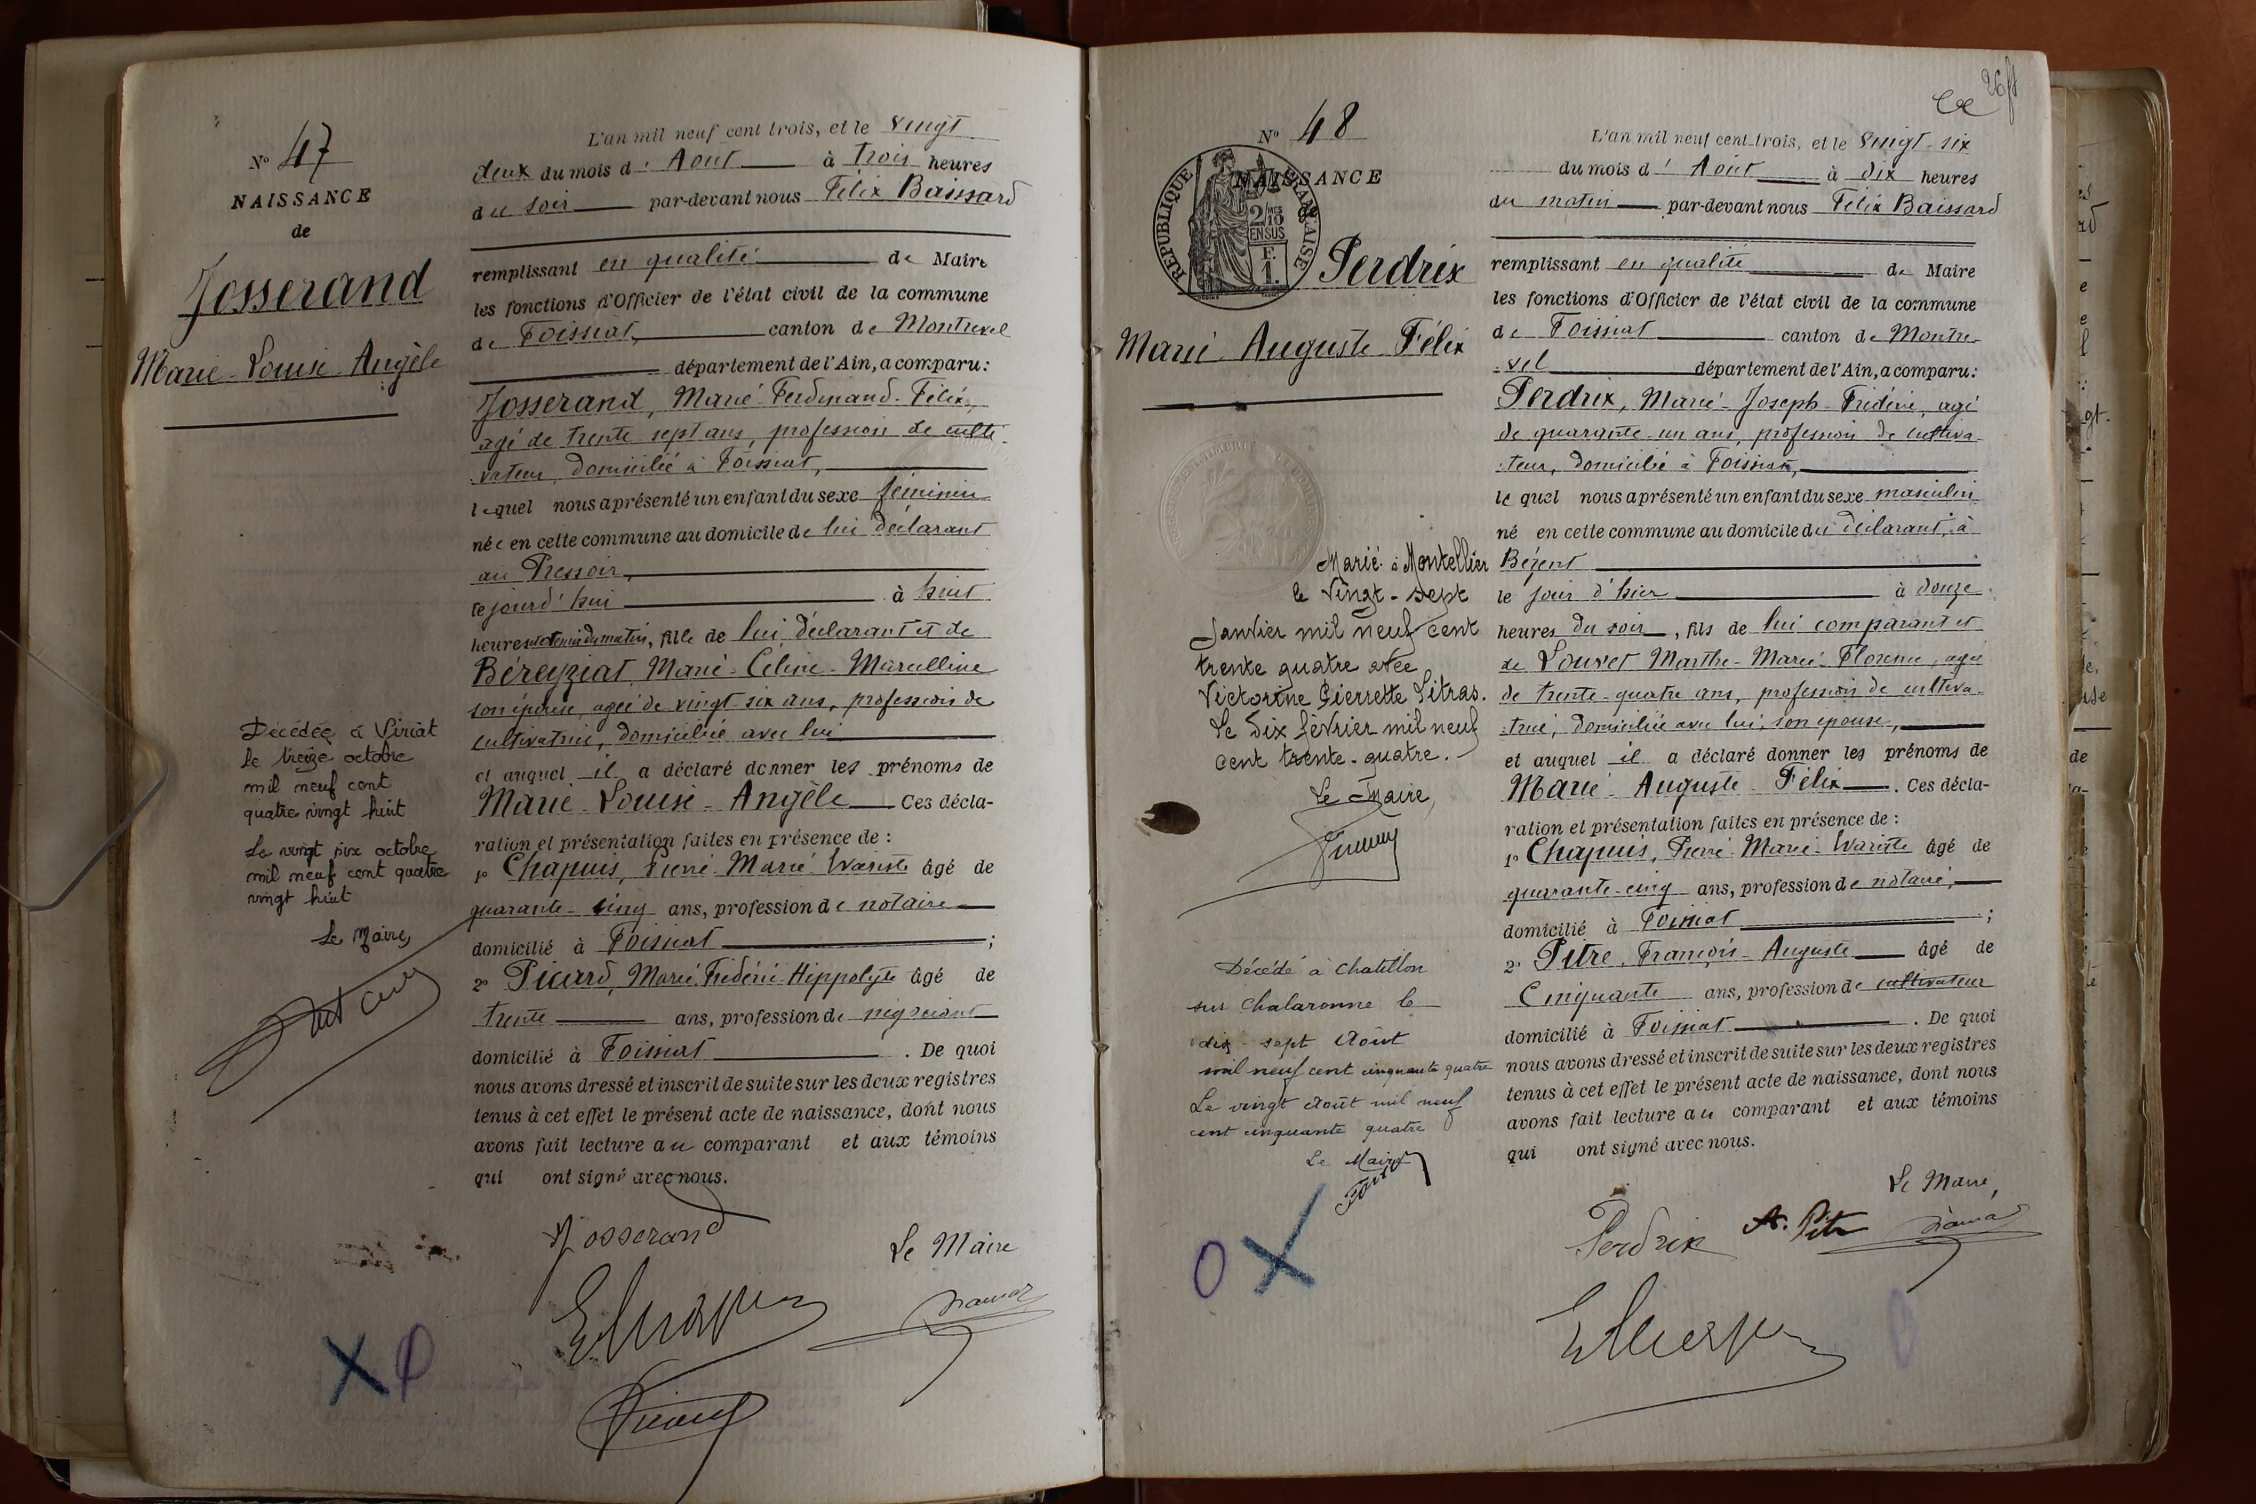 N° 47
NAISSANCE
de
Josserand
Marie-Louise-Angèle
Décédée à Viriat
le treize octobre
mil neuf cent
quatre vingt huit
Le vingt six octobre
mil neuf cent quatre
vingt huit
Le Maire
L'an mil neuf cent trois, et le vingt
deux du mois d' Aout à trois heures
du soir par-devant nous Félix Baissard
remplissant en qualité de Maire
les fonctions d'Officier de l'état civil de la commune
de Foissiat, canton de Montrevel
département de l'Ain, a comparu:
Josserand, Marie-Ferdinand-Félix,
agé de trente sept ans, profession de culti-
vateur, domicilié à Foissiat,
lequel nous a présenté un enfant du sexe féminin
née en cette commune au domicile de lui déclarant
au Pressoir,
cejourd'hui à huit
heures et demie du matin, fille de lui déclarant et de
Béreyziat, Marie-Céline-Marcelline
son épouse, agée de vingt-six ans, profession de
cultivatrice, domiciliée avec lui
et auquel il a déclaré donner les prénoms de
Marie-Louise-Angèle Ces décla-
ration et présentation faites en présence de :
1° Chapuis, Pierre-Marie-Evariste âgé de
quarante-cinq ans, profession de notaire
domicilié à Foissiat ;
2° Picard, Marie-Frédéric-Hippolyte âgé de
trente ans, profession de négociant
domicilié à Foissiat . De quoi
nous avons dressé et inscrit de suite sur les deux registres
tenus à cet effet le présent acte de naissance, dont nous
avons fait lecture au comparant et aux témoins
qui ont signé avec nous.
Josserand
Le Maire
N° 48
NAISSANCE
de
RÉPUBLIQUE FRANÇAISE
2/10 EN SUS
F.
1.
Perdrix
Marie-Auguste-Félix
Marié à Montellier
le vingt-sept
Janvier mil neuf cent
trente quatre avec
Victorine Pierrette Litras.
Le Dix février mil neuf
cent trente-quatre.
Le Maire,
Décédé à Chatillon
sur Chalaronne le
dix-sept Août
mil neuf cent cinquante quatre
Le vingt Août mil neuf
cent cinquante quatre
Le Maire
26
L'an mil neuf cent trois, et le vingt-six
du mois d' Août à dix heures
du matin par-devant nous Félix Baissard
remplissant en qualité de Maire
les fonctions d'Officier de l'état civil de la commune
de Foissiat canton de Montre-
-vel département de l'Ain, a comparu:
Perdrix, Marie-Joseph-Frédéric, agé
de quarante-un ans, profession de cultiva-
-teur, domicilié à Foissiat,
lequel nous a présenté un enfant du sexe masculin
né en cette commune au domicile du déclarant, à
Bézent
le jour d'hier à douze
heures du soir, fils de lui comparant et
de Louvet Marthe-Marie-Florence, agée
de trente-quatre ans, profession de cultiva-
-trice, domiciliée avec lui, son épouse,
et auquel il a déclaré donner les prénoms de
Marie-Auguste-Félix . Ces décla-
ration et présentation faites en présence de :
1° Chapuis, Pierre-Marie-Evariste âgé de
quarante-cinq ans, profession de notaire,
domicilié à Foissiat ;
2° Pitre, François-Auguste âgé de
Cinquante ans, profession de cultivateur
domicilié à Foissiat . De quoi
nous avons dressé et inscrit de suite sur les deux registres
tenus à cet effet le présent acte de naissance, dont nous
avons fait lecture au comparant et aux témoins
qui ont signé avec nous.
Le Maire,
Perdrix A. Pitre